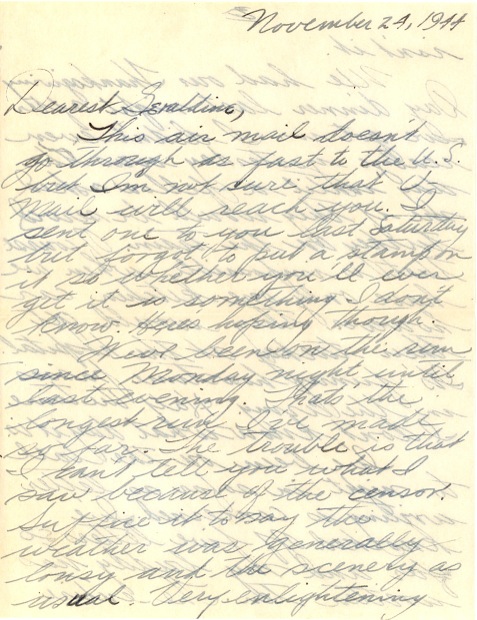 November 24, 1944
Dearest Geraldine,
This air mail doesn't
go through as fast to the U.S.
but I'm not sure that V
Mail will reach you. I
sent one to you last Saturday
but forgot to put a stamp on
it so whether you'll ever
get it is something I don't
know. Here's hoping though.
We've been on the run
since Monday night until
last evening. That's the
longest run I've made
so far. The trouble is that
I can't tell you what I
saw because of the censor.
Suffice it to say the
weather was generally
lousy and the scenery as
usual. Very enlightening